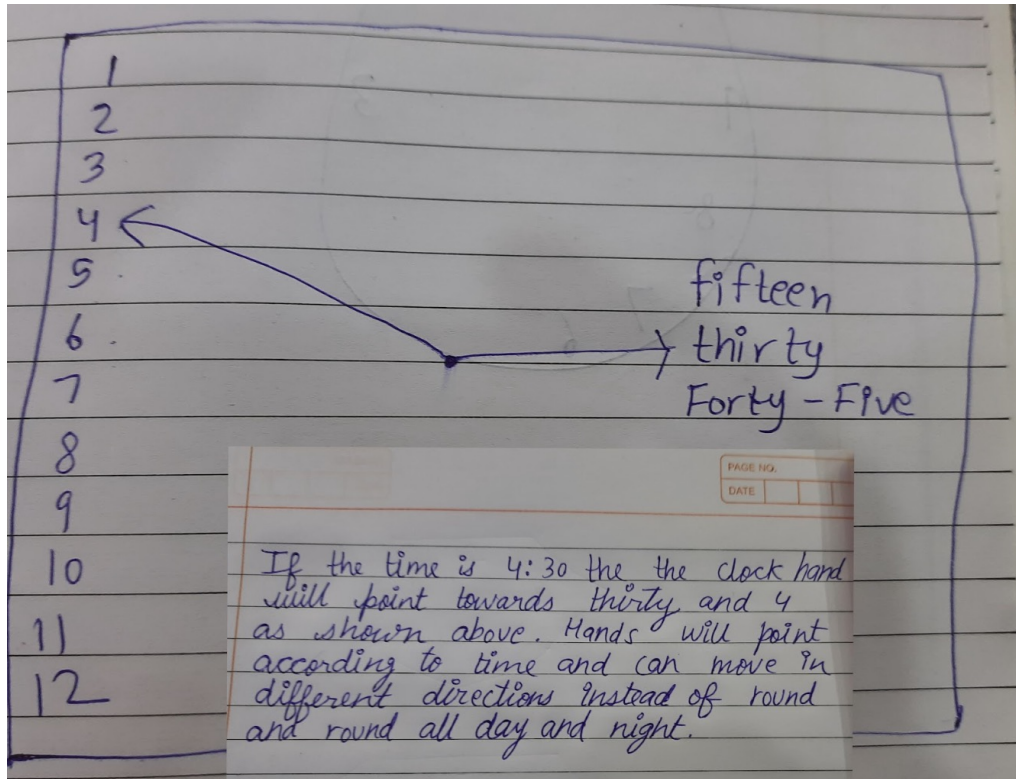 1
2
3
4
5
6
7
8
9
10
11
12
fifteen
thirty
Forty-Five
PAGE NO.
DATE
If the time is 4:30 the the clock hand
will point towards thirty and 4
as shown above. Hands will point
according to time and can move in
different directions instead of round
and round all day and night.